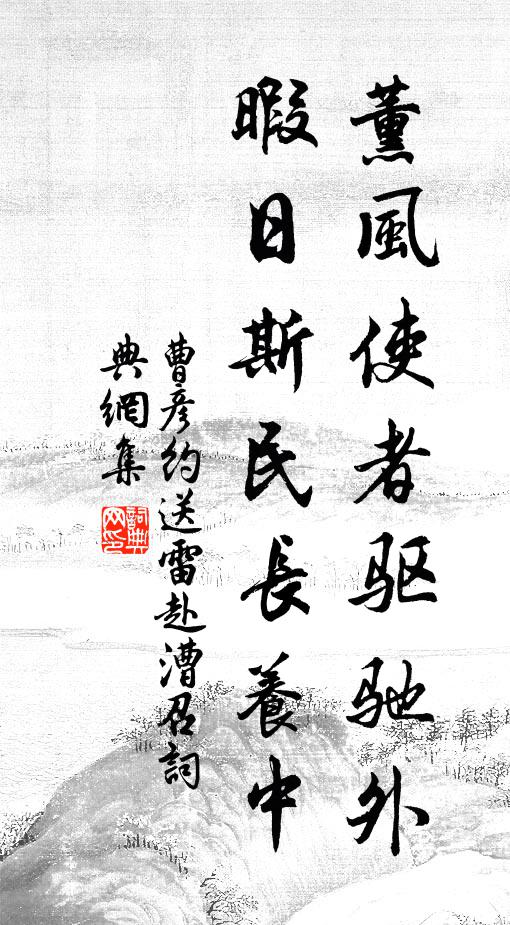 薰風使者驱驰外
暇日斯民長養中
曹彦約送雷赴漕召詞
典網集
詞典网印